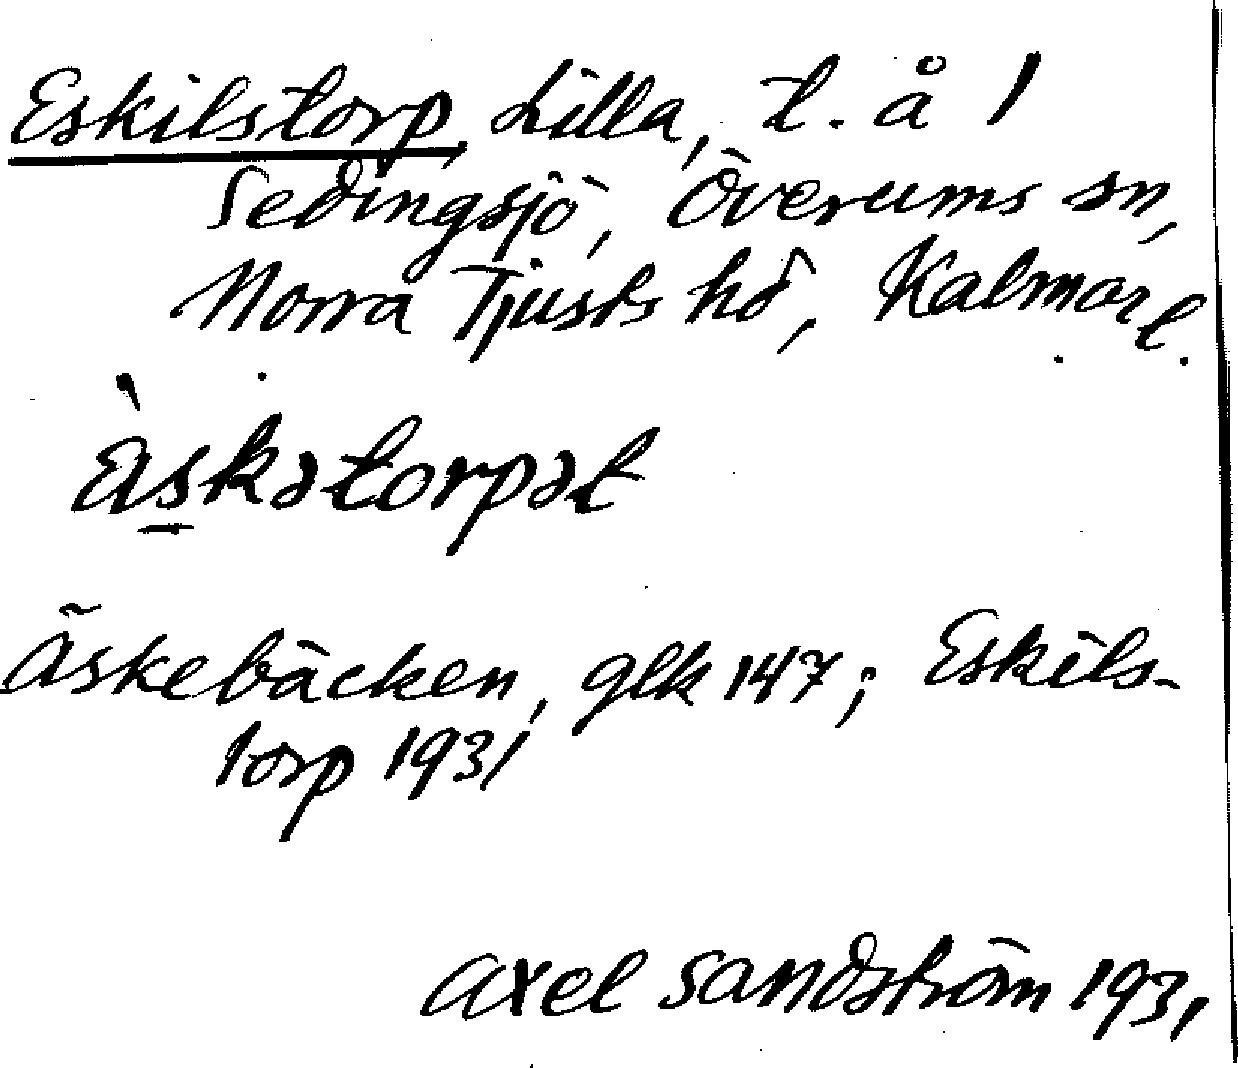 Eskilstorp, Lilla, t. å 1
Sedingsjö, Överums sn,
Norra Tjusts hd, Kalmar l.
`äskətorpət
Äskebäcken, glk 147; Eskils-
torp 1931
Axel Sandström 1931